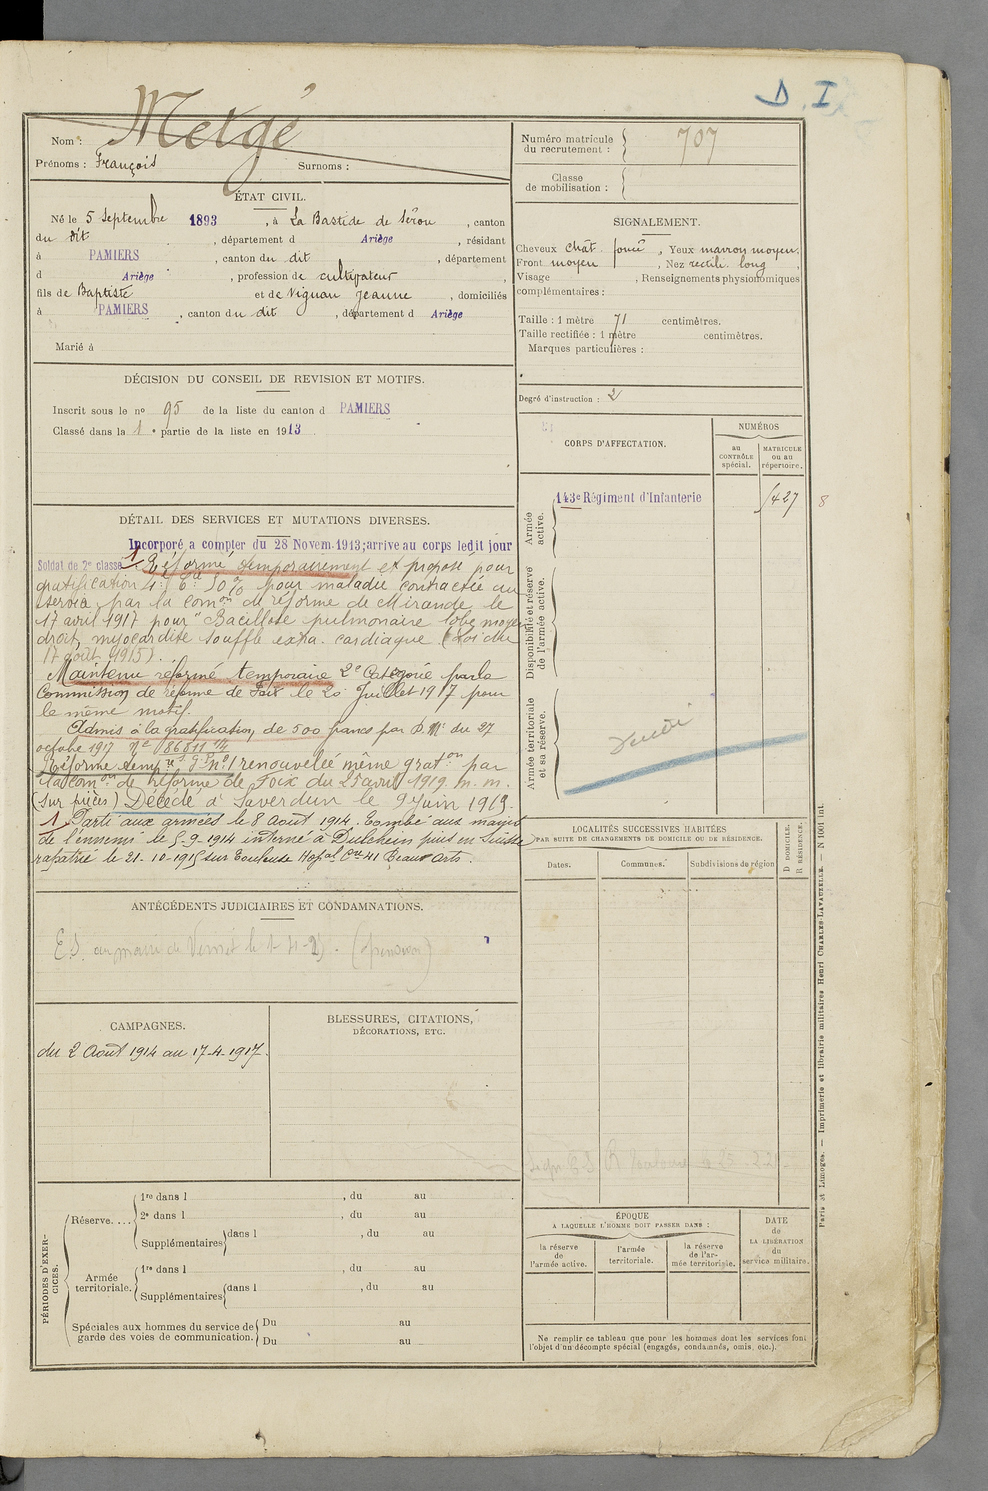 D. I
Nom : Metgé
Prénoms : François Surnoms :
Numéro matricule du recrutement : 707
Classe de mobilisation :
ÉTAT CIVIL.
Né le 5 Septembre 1893, à La Bastide de Sérou, canton
du dit, département d Ariège, résidant
à PAMIERS, canton du dit, département
d Ariège, profession de cultivateur
fils de Baptiste et de Vignau Jeanne, domiciliés
à PAMIERS, canton du dit, département d Ariège
Marié à
SIGNALEMENT.
Cheveux chât. foncé, Yeux marron moyen,
Front moyen, Nez rectil. long,
Visage , Renseignements physionomiques
complémentaires :
Taille : 1 mètre 71 centimètres.
Taille rectifiée : 1 mètre centimètres.
Marques particulières :
Degré d'instruction : 2
DÉCISION DU CONSEIL DE REVISION ET MOTIFS.
Inscrit sous le no 95 de la liste du canton d PAMIERS
Classé dans la 1e partie de la liste en 1913
CORPS D'AFFECTATION.
NUMÉROS
au CONTRÔLE spécial.
MATRICULE ou au répertoire.
Armée active.
143e Régiment d'Infanterie 5427 8
Disponibilité et réserve de l'armée active.
Armée territoriale et sa réserve.
DÉTAIL DES SERVICES ET MUTATIONS DIVERSES.
Incorporé a compter du 28 Novem. 1913; arrive au corps ledit jour
Soldat de 2e classe 1 Réformé temporairement et proposé pour
gratification 4e Cie 50% pour maladie contractée au
service, par la Comon de réforme de Mirande le
17 avril 1917 pour "Bacillose pulmonaire lobe moyen
droit, myocardite souffle extra. cardiaque (Loi du
17 août 1915).
Maintenu réformé temporaire 2e Catégorie par la
Commission de réforme de Foix le 20 Juillet 1917 pour
le même motif.
Admis à la gratification de 500 francs par D. Mle du 27
octobre 1917 No 86811
Réforme tempre no 1 renouvelée même graton par
la Comon de Réforme de Foix du 25 avril 1919. m. m.
(sur pièces) Décédé à Saverdun le 9 Juin 1919.
1 Parti aux armées le 8 Août 1914. Tombé aux mains
de l'ennemi le 5-9-1914 interné à puis en Suisse
rapatrié le 21-10-1915 sur Toulouse Hopal Cre 41 Beaux Arts.
LOCALITÉS SUCCESSIVES HABITÉES
PAR SUITE DE CHANGEMENTS DE DOMICILE OU DE RÉSIDENCE.
Dates.
Communes.
Subdivisions de région
D DOMICILE.
R RÉSIDENCE.
ANTÉCÉDENTS JUDICIAIRES ET CONDAMNATIONS.
E.S. au maire de Vernet le
CAMPAGNES.
du 2 Août 1914 au 17-4-1917.
BLESSURES, CITATIONS,
DÉCORATIONS, ETC.
PÉRIODES D'EXERCICES.
Réserve....
1re dans l , du au
2e dans l , du au
Supplémentaires dans l , du au
Armée territoriale.
1re dans l , du au
Supplémentaires dans l , du au
Spéciales aux hommes du service de garde des voies de communication.
Du au
Du au
ÉPOQUE
A LAQUELLE L'HOMME DOIT PASSER DANS :
la réserve de l'armée active.
l'armée territoriale.
la réserve de l'armée territoriale.
DATE de LA LIBÉRATION du service militaire.
Ne remplir ce tableau que pour les hommes dont les services font
l'objet d'un décompte spécial (engagés, condamnés, omis, etc.).
Paris et Limoges. — Imprimerie et librairie militaires Henri CHARLES-LAVAUZELLE. — N 1001 int.